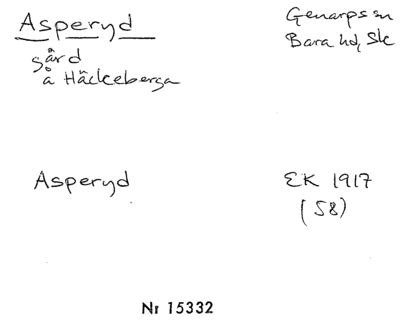 Asperyd
gård
å Häckeberga
Genarps sn
Bara hd, Sk
Asperyd
EK 1917
(58)
Nr 15332